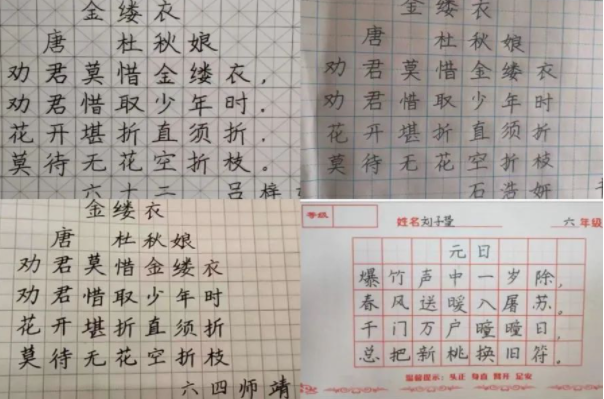 金缕衣
唐 杜秋娘
劝君莫惜金缕衣，
劝君惜取少年时.
花开堪折直须折.
莫待无花空折枝。
六十二 吕梓
金缕衣
唐 杜秋娘
劝君莫惜金缕衣
劝君惜取少年时
花开堪折直须折
莫待无花空折枝
石浩妍
金缕衣
唐 杜秋娘
劝君莫惜金缕衣
劝君惜取少年时
花开堪折直须折
莫待无花空折枝
六四师靖
等级
姓名 六年级
元日
爆竹声中一岁除，
春风送暖入屠苏。
千门万户曈曈日，
总把新桃换旧符。
温馨提示：头正 身直 臂开 足安